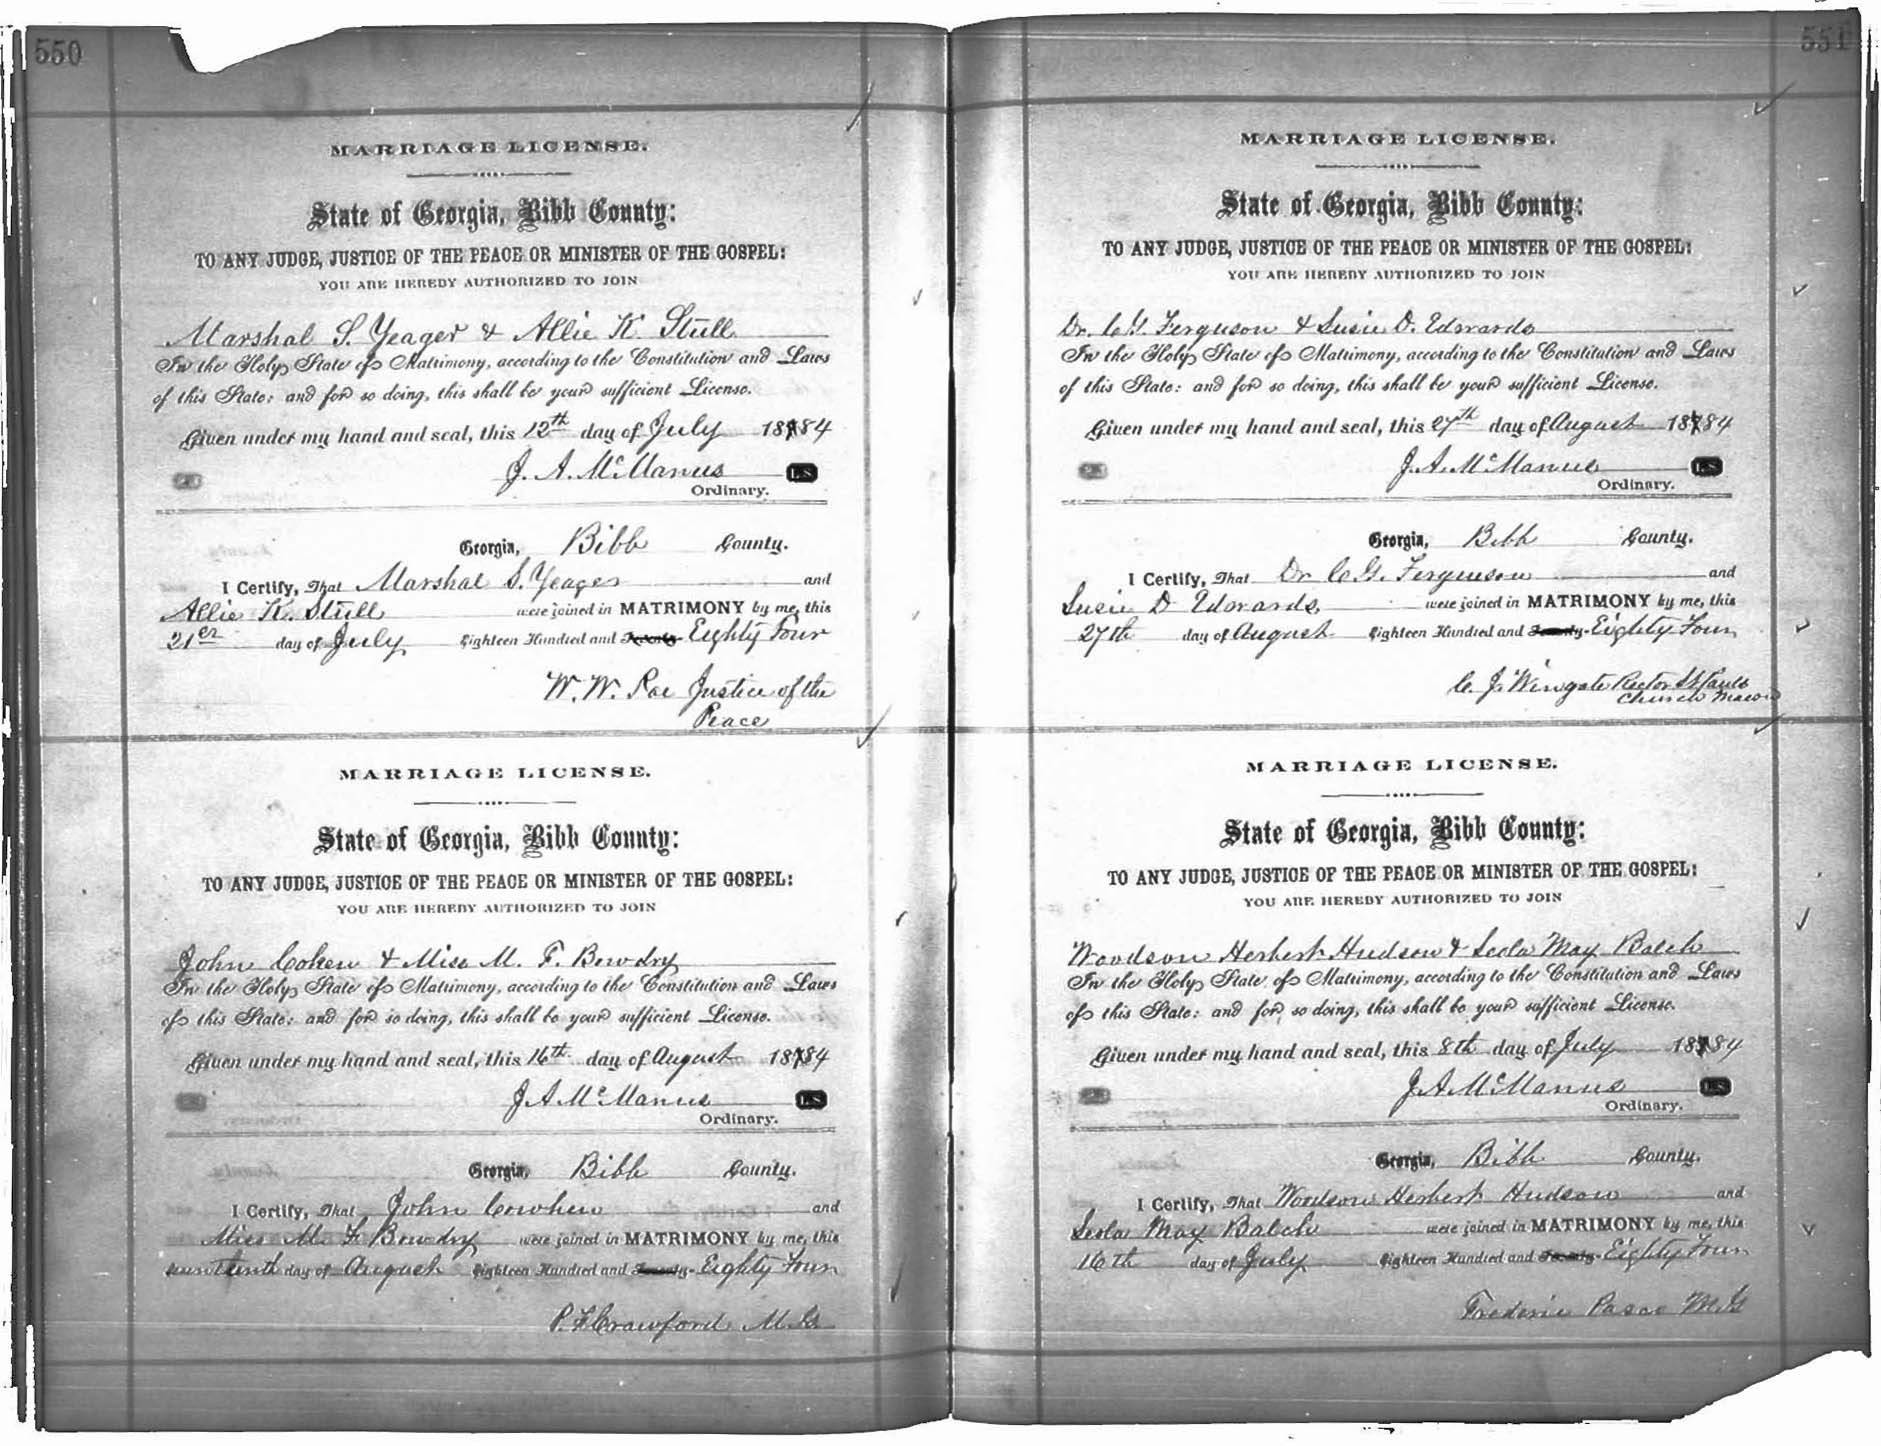 550
MARRIAGE LICENSE.
State of Georgia, Bibb County:
TO ANY JUDGE, JUSTICE OF THE PEACE OR MINISTER OF THE GOSPEL:
YOU ARE HEREBY AUTHORIZED TO JOIN
Marshal S. Yeager & Allie K. Stull
In the Holy State of Matrimony, according to the Constitution and Laws
of this State: and for so doing, this shall be your sufficient License.
Given under my hand and seal, this 12th day of July 1884
J. A. McManus L.S.
Ordinary.
Georgia, Bibb County.
I Certify, That Marshal S. Yeager and
Allie K. Stull were joined in MATRIMONY by me, this
21st day of July Eighteen Hundred and Eighty Four
W. W. Roe Justice of the
Peace
MARRIAGE LICENSE.
State of Georgia, Bibb County:
TO ANY JUDGE, JUSTICE OF THE PEACE OR MINISTER OF THE GOSPEL:
YOU ARE HEREBY AUTHORIZED TO JOIN
John Cohen & Miss M. F. Bowdry
In the Holy State of Matrimony, according to the Constitution and Laws
of this State: and for so doing, this shall be your sufficient License.
Given under my hand and seal, this 16th day of August 1884
J. A. McManus L.S.
Ordinary.
Georgia, Bibb County.
I Certify, That John Cowhen and
Miss M. F. Bowdry were joined in MATRIMONY by me, this
day of August Eighteen Hundred and Eighty Four
P. F. Crawford M.G.
551
MARRIAGE LICENSE.
State of Georgia, Bibb County:
TO ANY JUDGE, JUSTICE OF THE PEACE OR MINISTER OF THE GOSPEL:
YOU ARE HEREBY AUTHORIZED TO JOIN
Dr. C. G. Ferguson & Susie D. Edwards
In the Holy State of Matrimony, according to the Constitution and Laws
of this State: and for so doing, this shall be your sufficient License.
Given under my hand and seal, this 27th day of August 1884
J. A. McManus L.S.
Ordinary.
Georgia, Bibb County.
I Certify, That Dr C. G. Ferguson and
Susie D Edwards, were joined in MATRIMONY by me, this
27th day of August Eighteen Hundred and Eighty Four
C. J. Wingate Rector St Pauls
Church Macon
MARRIAGE LICENSE.
State of Georgia, Bibb County:
TO ANY JUDGE, JUSTICE OF THE PEACE OR MINISTER OF THE GOSPEL:
YOU ARE HEREBY AUTHORIZED TO JOIN
Woodson Herbert Hudson & Leola May Balch
In the Holy State of Matrimony, according to the Constitution and Laws
of this State: and for so doing, this shall be your sufficient License.
Given under my hand and seal, this 8th day of July 1884
J. A. McManus L.S.
Ordinary.
Georgia, Bibb County.
I Certify, That Woodson Herbert Hudson and
Leola May Balch were joined in MATRIMONY by me, this
16th day of July Eighteen Hundred and Eighty Four
Frederic Pasco M.G